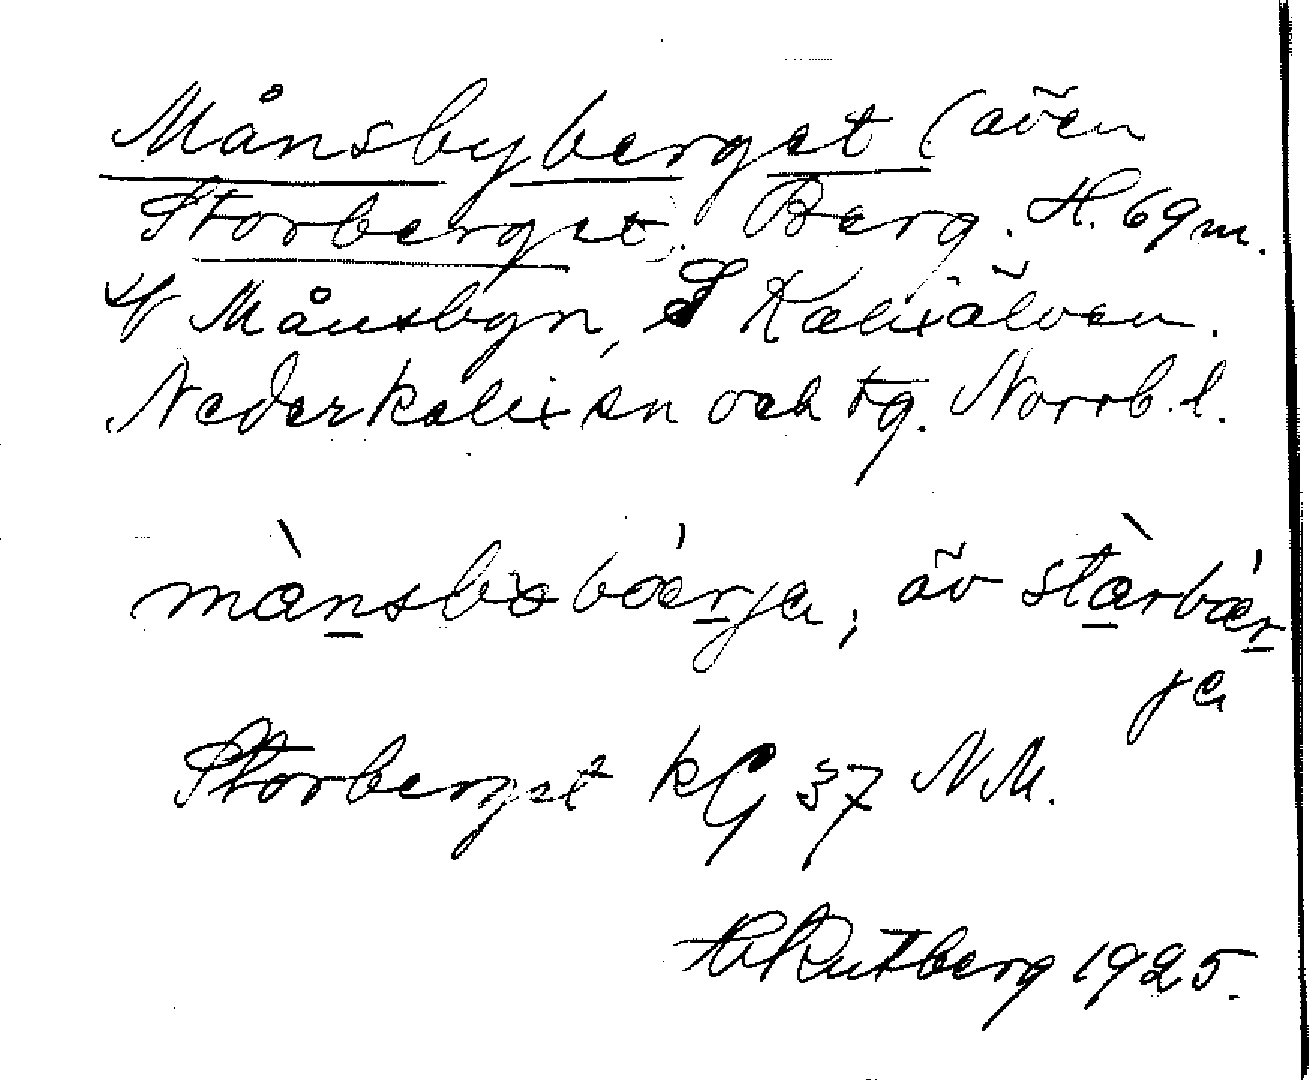 Månsbyberget (även
Storberget). Berg. H. 69 m.
V Månsbyn, S Kalixälven.
Nederkalix sn och tg. Norrb. l.
bærja, äv stárbær
ja
Storberget kG 37 NM.
H Rutberg 1925.